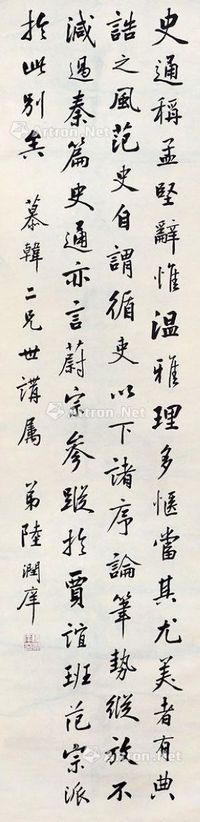 史通稱孟堅辭惟溫雅理多愜當其尤美者有典
誥之風范史自謂循吏以下諸序論筆勢縱放不
減過秦篇史通亦言蔚宗參蹤於賈誼班范宗派
於此別矣
慕韓二兄世講屬 弟陸潤庠
Artron.Net